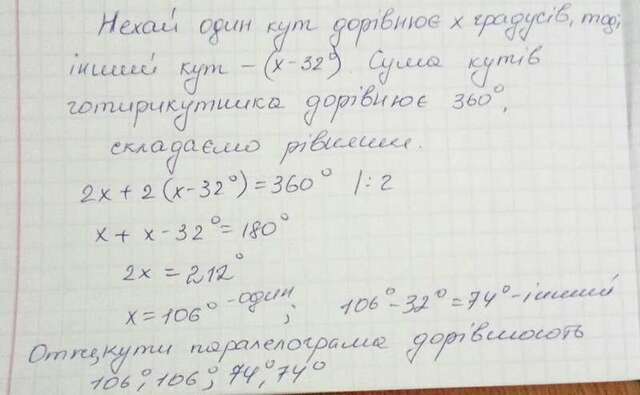 Нехай один кут дорівнює x градусів, тоді
інший кут – (x-32°). Сума кутів
чотирикутника дорівнює 360°,
складаємо рівняння.
2x + 2(x-32°) = 360° |: 2
x + x - 32° = 180°
2x = 212°
x = 106° - один ; 106° - 32° = 74° - інший
Отже, кути паралелограма дорівнюють
106°, 106°, 74°, 74°